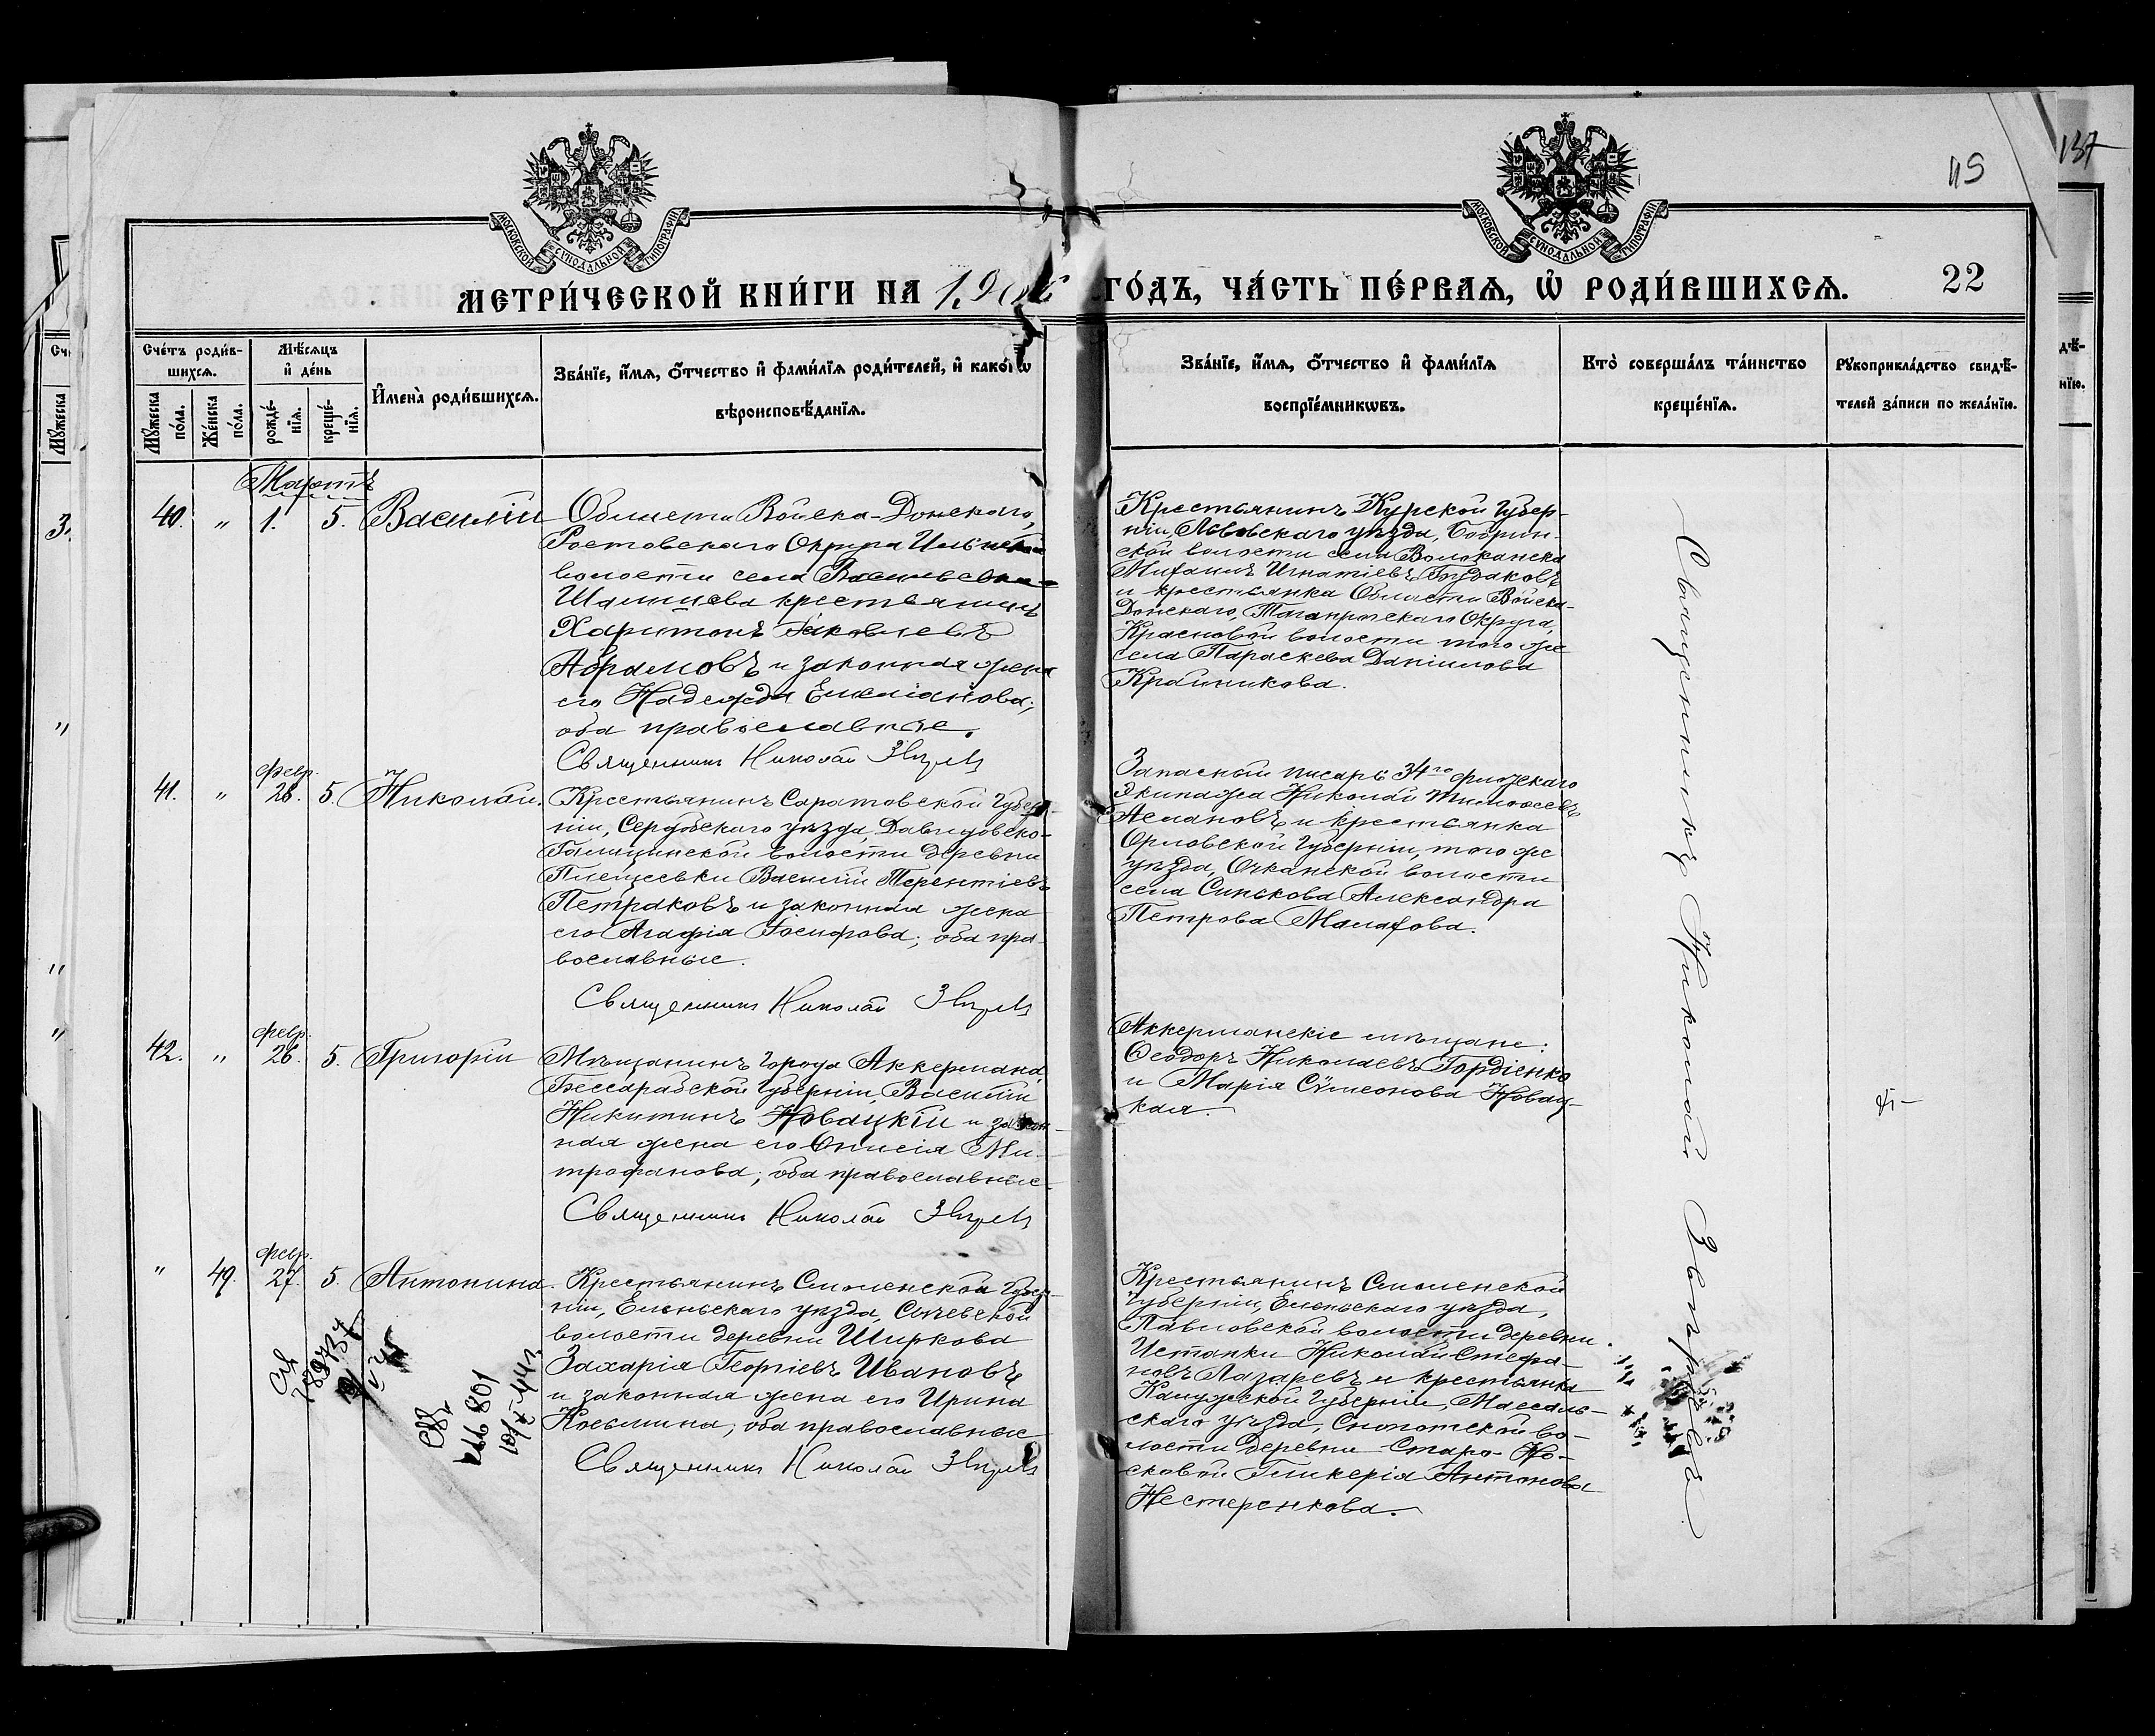 МОСКОВСКОЙ СѴНОДАЛЬНОЙ ТИПОГРАФІИ
МОСКОВСКОЙ СѴНОДАЛЬНОЙ ТИПОГРАФІИ
115
137
МЕТРИ́ЧЕСКОЙ КНИ́ГИ НА 190 ГО́ДЪ, ЧА́СТЬ ПЕ́РВАѦ, Ѡ҆ РОДИ́ВШИХСѦ. 22
Сче́тъ роди́в-
шихсѧ.
Мꙋ́жеска по́ла.
Же́нска по́ла.
Мѣ́сѧцъ и҆ де́нь
рожде́-нїѧ.
креще́-нїѧ.
И҆мена̀ роди́вшихсѧ.
Зва́нїе, и҆́мѧ, ѻ҆́тчество и҆ фами́лїѧ роди́телей, и҆ како́гѡ
вѣроисповѣ́данїѧ.
Зва́нїе, и҆́мѧ, ѻ҆́тчество и҆ фами́лїѧ
воспрїе́мникѡвъ.
Кто̀ соверша́лъ та́инство
креще́нїѧ.
Рꙋкоприкла́дство свидѣ́-
телей за́писи по жела́нїю.
Мартъ
40. " 1. 5. Василій
Области Войска-Донскаго,
Ростовскаго Округа
волости села
крестьянинъ
Харитонъ Іаковлевъ
Абрамовъ и законная жена
его Надежда Емеліанова;
оба православные.
Священникъ Николай
Крестьянинъ Курской Губер-
ніи, Льговскаго уѣзда,
ской волости села
Михаилъ Игнатіевъ
и крестьянка Области Войска-
Донскаго, Таганрогскаго Округа,
волости того же
села Параскева Даніилова
Крайникова.
февр.
41. " 28. 5. Николай.
Крестьянинъ Саратовской Губер-
ніи, Сердобскаго уѣзда, Давыдовско-
Голицинской волости деревни
Плещеевки Василій Терентіевъ
Петраковъ и законная жена
его Агафія Іосифова; оба пра-
вославные.
Священникъ Николай
Запасный писарь 34го флотскаго
Экипажа Николай Тимоѳеевъ
Аслановъ и крестьянка
Орловской Губерніи, того же
уѣзда, волости
села Александра
Петрова Малахова.
февр.
42. " 26. 5. Григорій
Мѣщанинъ города Аккермана,
Бессарабской Губерніи, Василій
Никитинъ Новацкій и закон-
ная жена его Онисія Ми-
трофанова; оба православные
Священникъ Николай
Аккерманскіе мѣщане:
Ѳеодоръ Николаевъ Гордіенко
и Марія Сѵмеонова Новац-
кая.
февр.
" 49. 27. 5. Антонина.
Крестьянинъ Смоленской Губер-
ніи, Ельнскаго уѣзда,
волости деревни Ширкова
Захарія Георгіевъ Ивановъ
и законная жена его Ирина
Косьмина; оба православные
Священникъ Николай
Крестьянинъ Смоленской
Губерніи, Ельнскаго уѣзда,
Павловской волости деревни
Николай Стефа-
новъ Лазаревъ и крестьянка
Калужской Губерніи, Массаль-
скаго уѣзда, во-
лости деревни Старо-Но-
сковой Гликерія Антонова
Нестеренкова.
Священникъ Николай